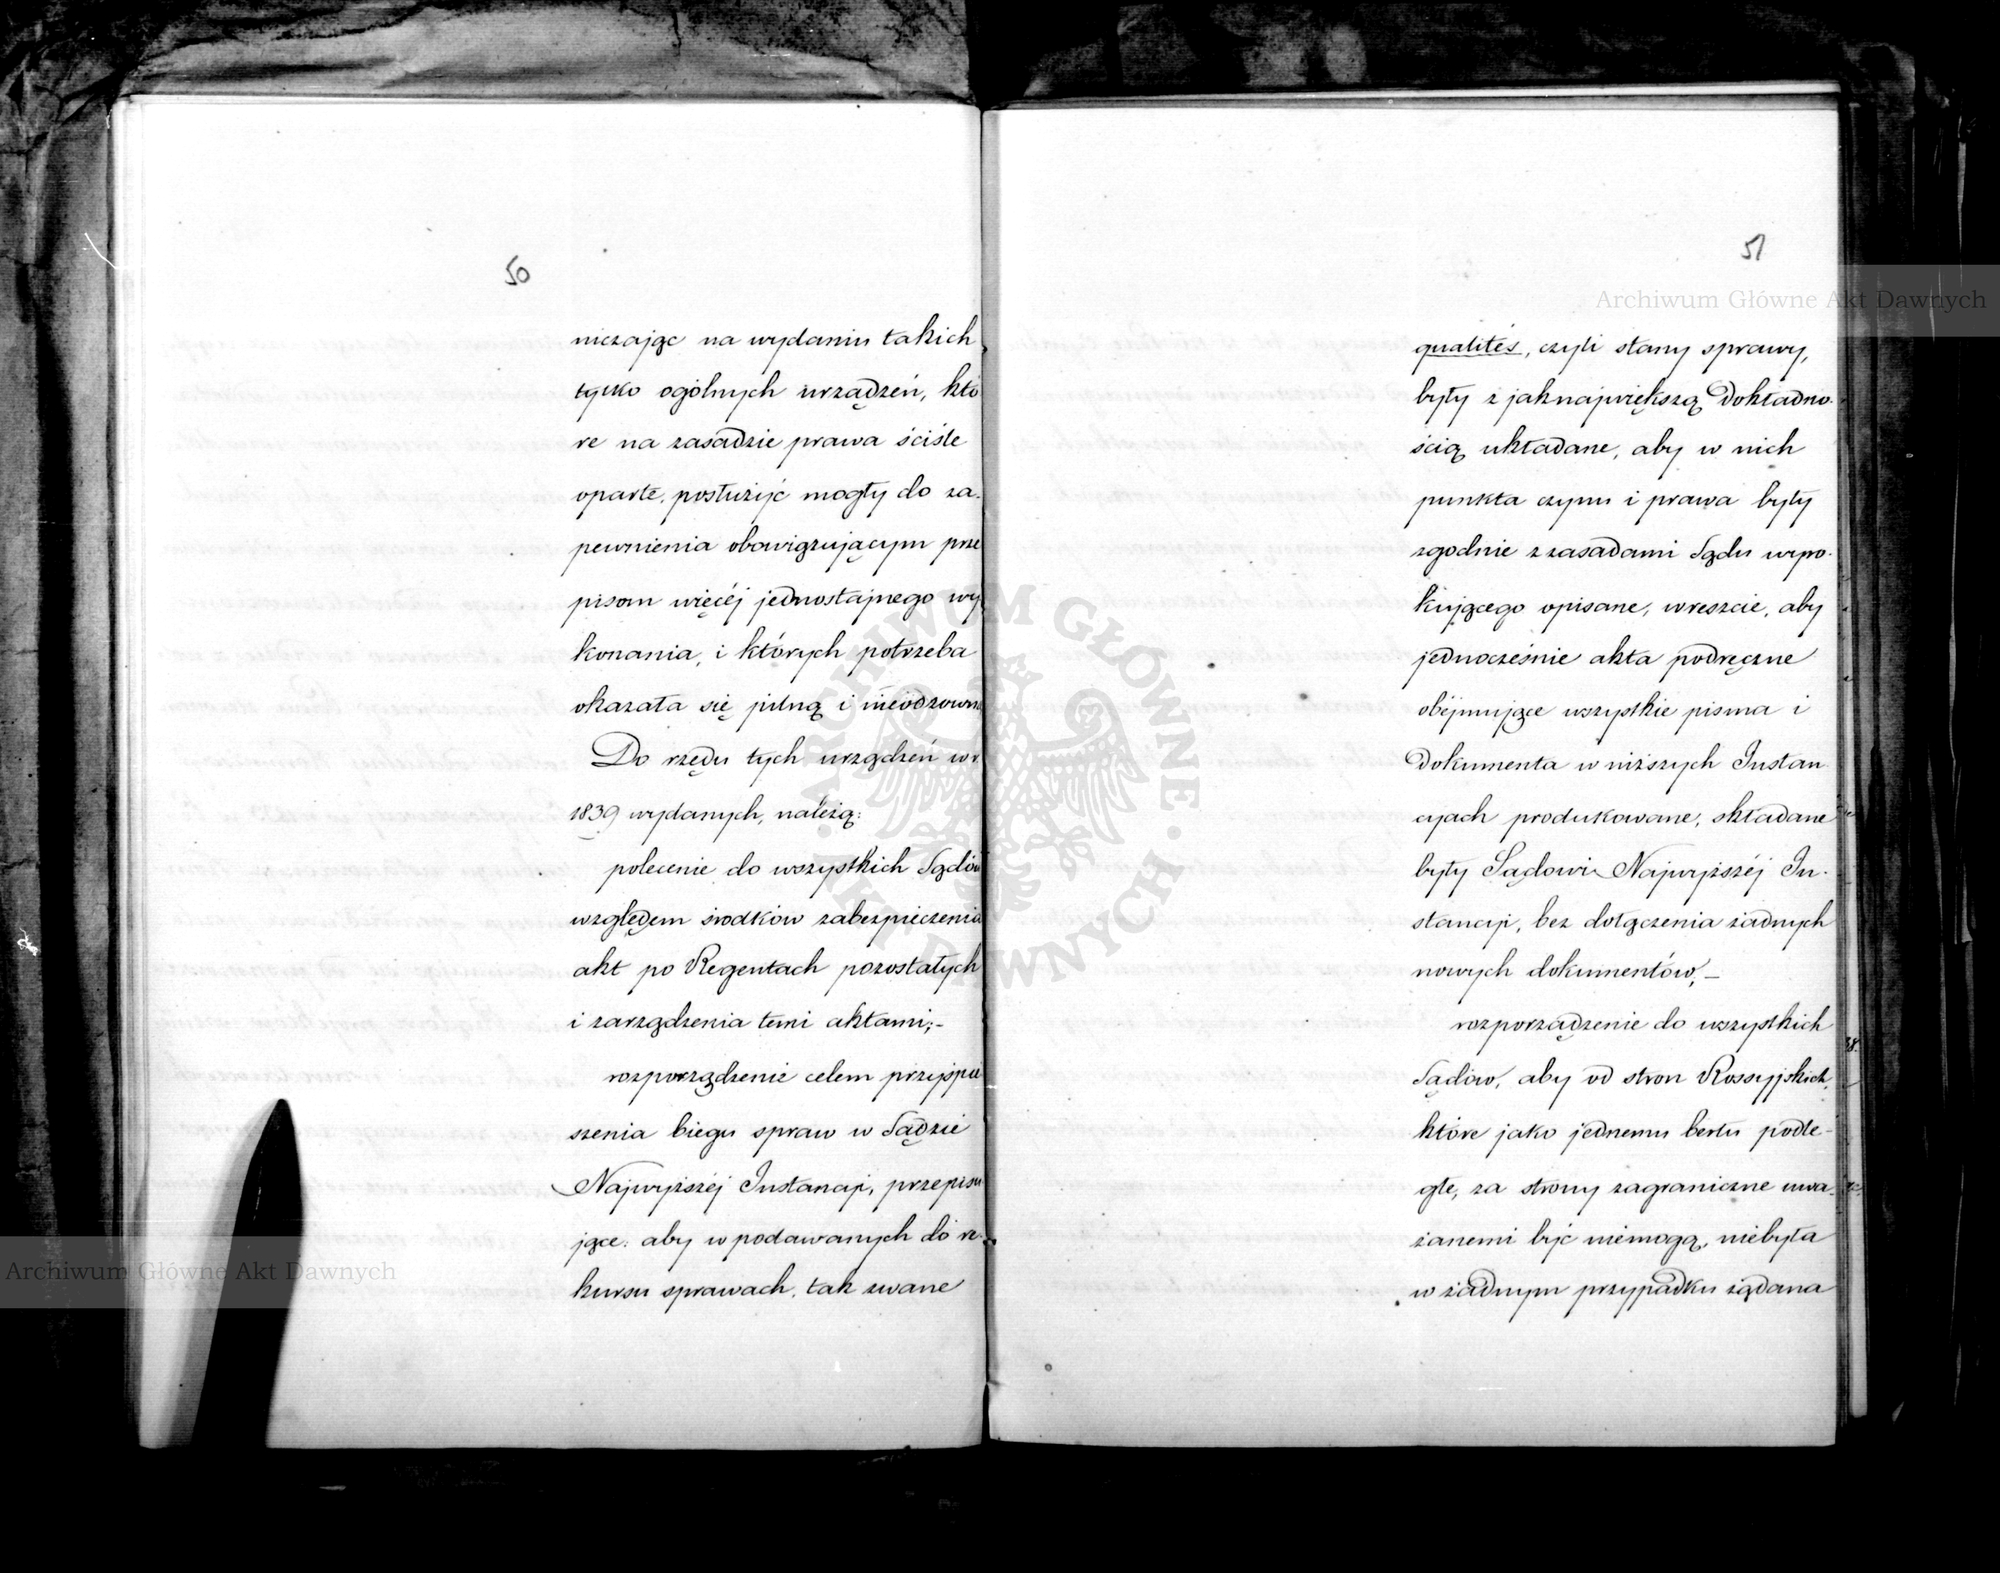 50
niczając na wydaniu takich
tylko ogólnych urządzeń, któ
re na zasadzie prawa ściśle
oparte, posłużyć mogły do za-
pewnienia obowiązującym prze
pisom więcéj jednostajnego wy
konania, i których potrzeba
okazała się pilną i nieodzowną
Do rzędu tych urządzeń w r.
1839 wydanych, należą:
polecenie do wszystkich Sądów
względem środków zabezpieczenia
akt po Regentach pozostałych
i zarządzenia temi aktami;-
rozporządzenie celem przyśpie
szenia biegu spraw w Sądzie
Najwyższéj Instancji, przepisu
jące: aby w podawanych do re-
kursu sprawach, tak zwane
51
qualités, czyli stany sprawy,
były z jaknajwiększą dokładno-
ścią układane, aby w nich
punkta czynu i prawa były
zgodnie z zasadami Sądu wyro-
kującego opisane, wreszcie, aby
jednocześnie akta podręczne
obéjmujące wszystkie pisma i
dokumenta w niższych Instan
cyach produkowane, składane
były Sądowi Najwyższéj In-
stancji, bez dołączenia żadnych
nowych dokumentów,_
rozporządzenie do wszystkich
Sądów, aby od stron Rossyjskich,
które jako jednemu berłu podle-
głe, za strony zagraniczne uwa-
żanemi być niemogą, niebyła
w żadnym przypadku żądana
Archiwum Główne Akt Dawnych
Archiwum Główne Akt Dawnych
ARCHIWUM GŁÓWNE · AKT DAWNYCH ·